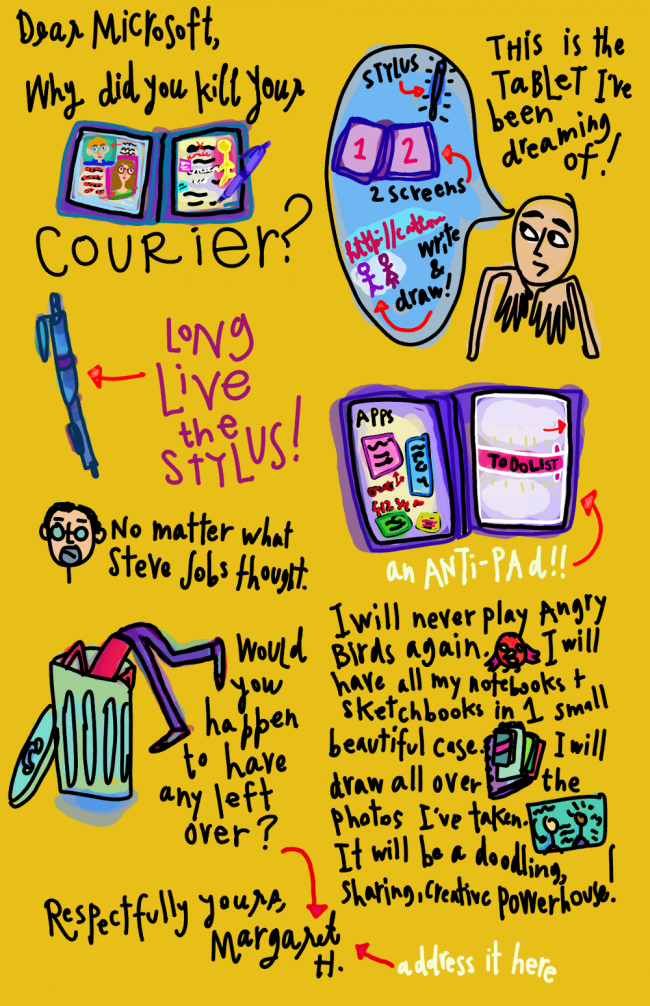 Dear Microsoft,
Why did you kill your
Courier?
This is the
Tablet I've
been
dreaming
of!
Stylus
1 2
2 screens
write
&
draw!
Long
Live
the
Stylus!
No matter what
Steve Jobs thought.
Apps
To Do List
an Anti-Pad!!
Would
you
happen
to have
any left
over?
I will never play Angry
Birds again. I will
have all my notebooks +
sketchbooks in 1 small
beautiful case. I will
draw all over the
photos I've taken.
It will be a doodling,
sharing, creative powerhouse!
Respectfully yours,
Margaret
H.
address it here